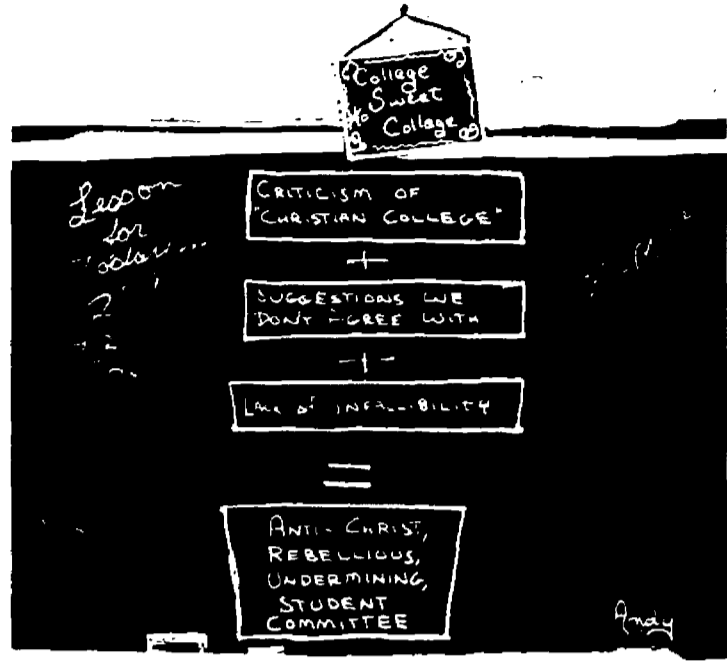 College
Sweet
College
Lesson
for
CRITICISM OF
"CHRISTIAN COLLEGE"
+
SUGGESTIONS WE
DON'T AGREE WITH
+
LACK OF INFALLIBILITY
=
ANTI-CHRIST,
REBELLIOUS,
UNDERMINING,
STUDENT
COMMITTEE
Andy